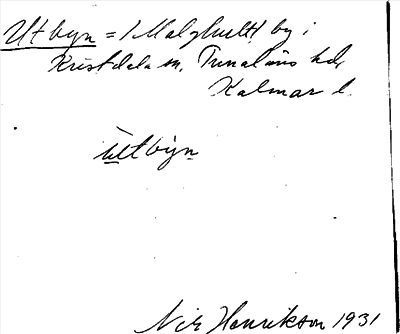 Utbyn = / Malghult / by i
Kristdala sn, Tunaläns hd,
Kalmar l.
ùtbyn
Nils Henrikson 1931